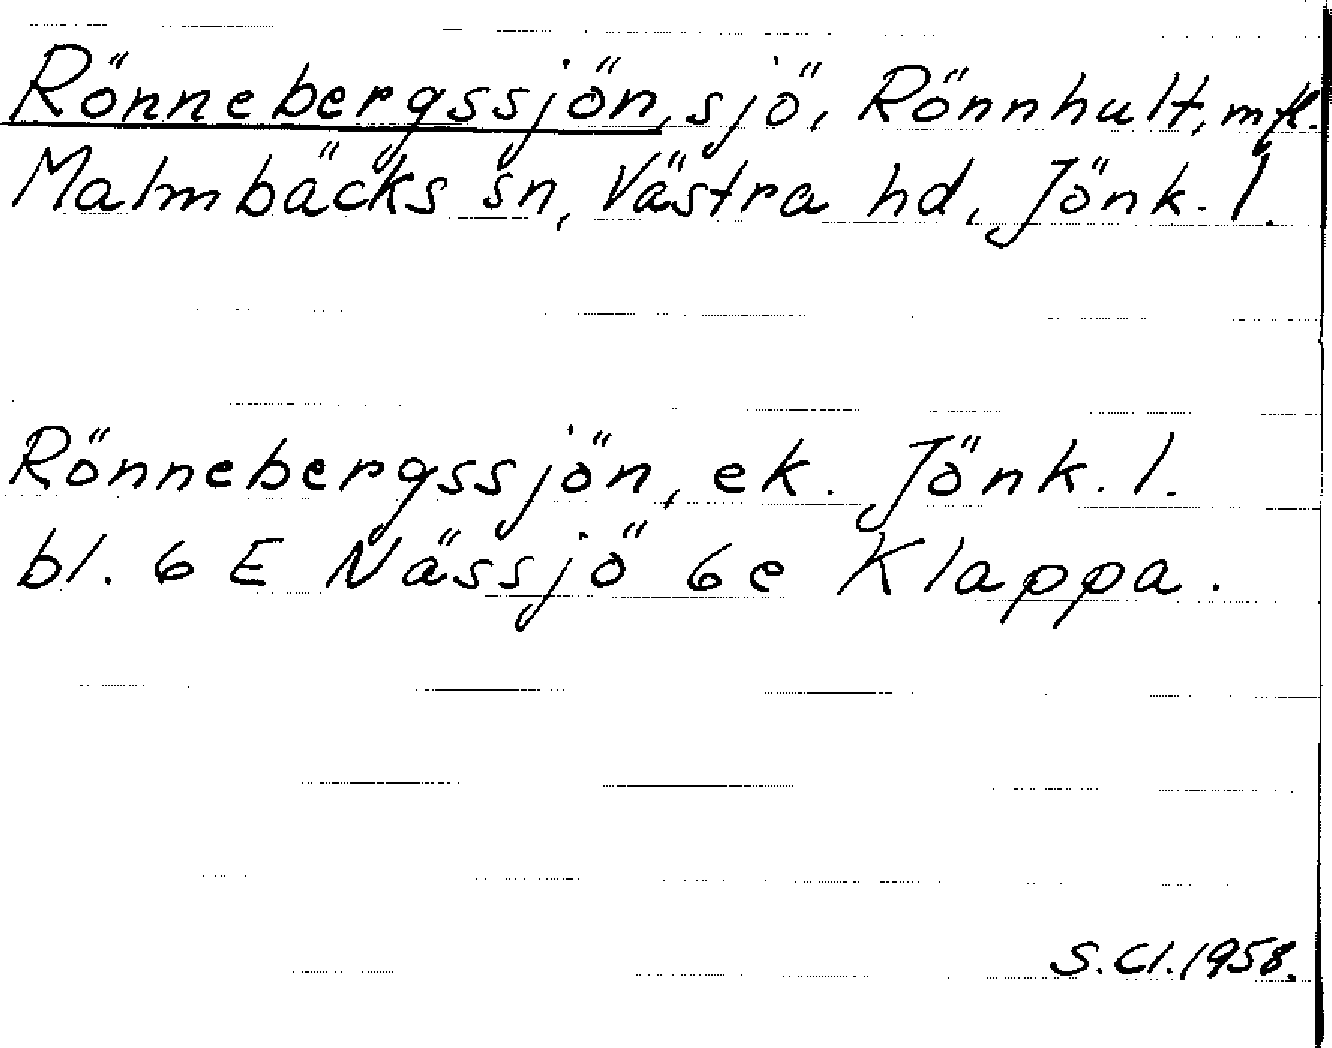 Rönnebergssjön, sjö, Rönnhult, mfl.
Malmbäcks sn, Västra hd, Jönk. l.
Rönnebergssjön, ek. Jönk. l.
bl. 6 E Nässjö 6e Klappa.
S. Cl. 1958.